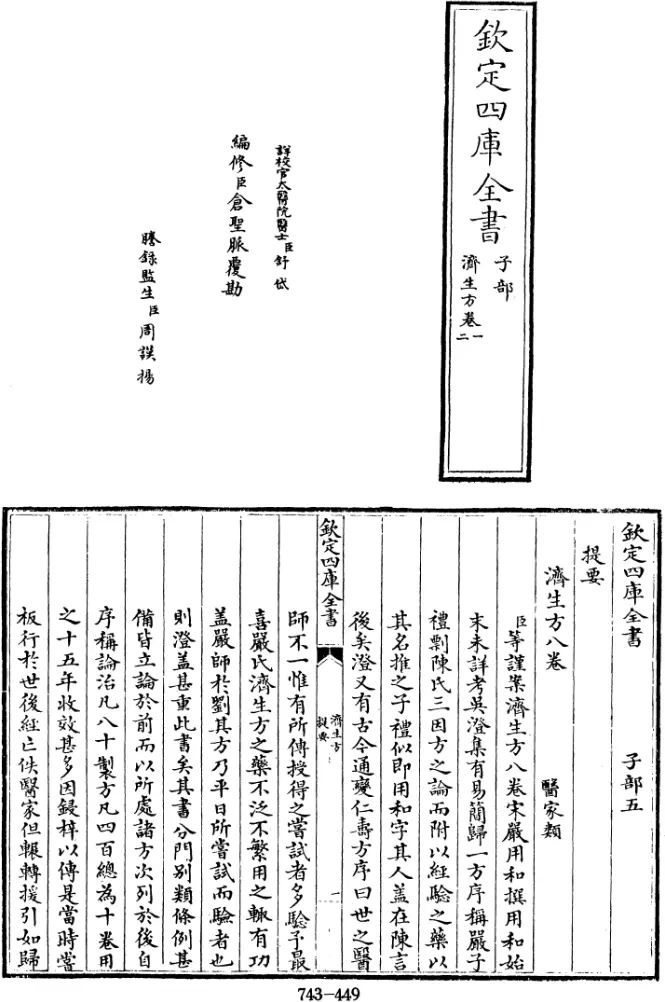 欽定四庫全書
子部
濟生方卷一
二
詳校官太醫院醫士臣舒岱
編修臣倉聖脈覆勘
謄錄監生臣周謨揚
欽定四庫全書 子部五
提要
濟生方八卷 醫家類
臣等謹案濟生方八卷宋嚴用和撰用和始
末未詳考吳澄集有易簡歸一方序稱嚴子
禮剽陳氏三因方之論而附以經驗之藥以
其名推之子禮似即用和字其人蓋在陳言
後矣澄又有古今通變仁壽方序曰世之醫
欽定四庫全書
濟生方
提要
一
師不一惟有所傳授得之嘗試者多驗予最
喜嚴氏濟生方之藥不泛不繁用之輒有功
蓋嚴師於劉其方乃平日所嘗試而驗者也
則澄蓋甚重此書矣其書分門別類條例甚
備皆立論於前而以所處諸方次列於後自
序稱論治凡八十製方凡四百總為十卷用
之十五年收效甚多因鋟梓以傳是當時嘗
板行於世後經亡佚醫家但輾轉援引如歸
743-449